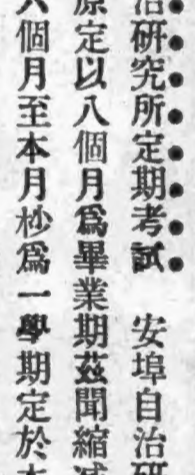 治研究所定期考試　安埠自治研
原定以八個月爲畢業期茲聞縮減
六個月至本月杪爲一學期定於本